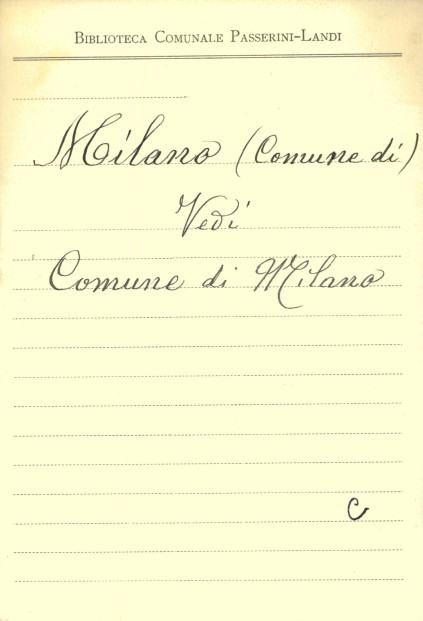 Biblioteca Comunale Passerini-Landi
Milano (Comune di)
Vedi
Comune di Milano
C